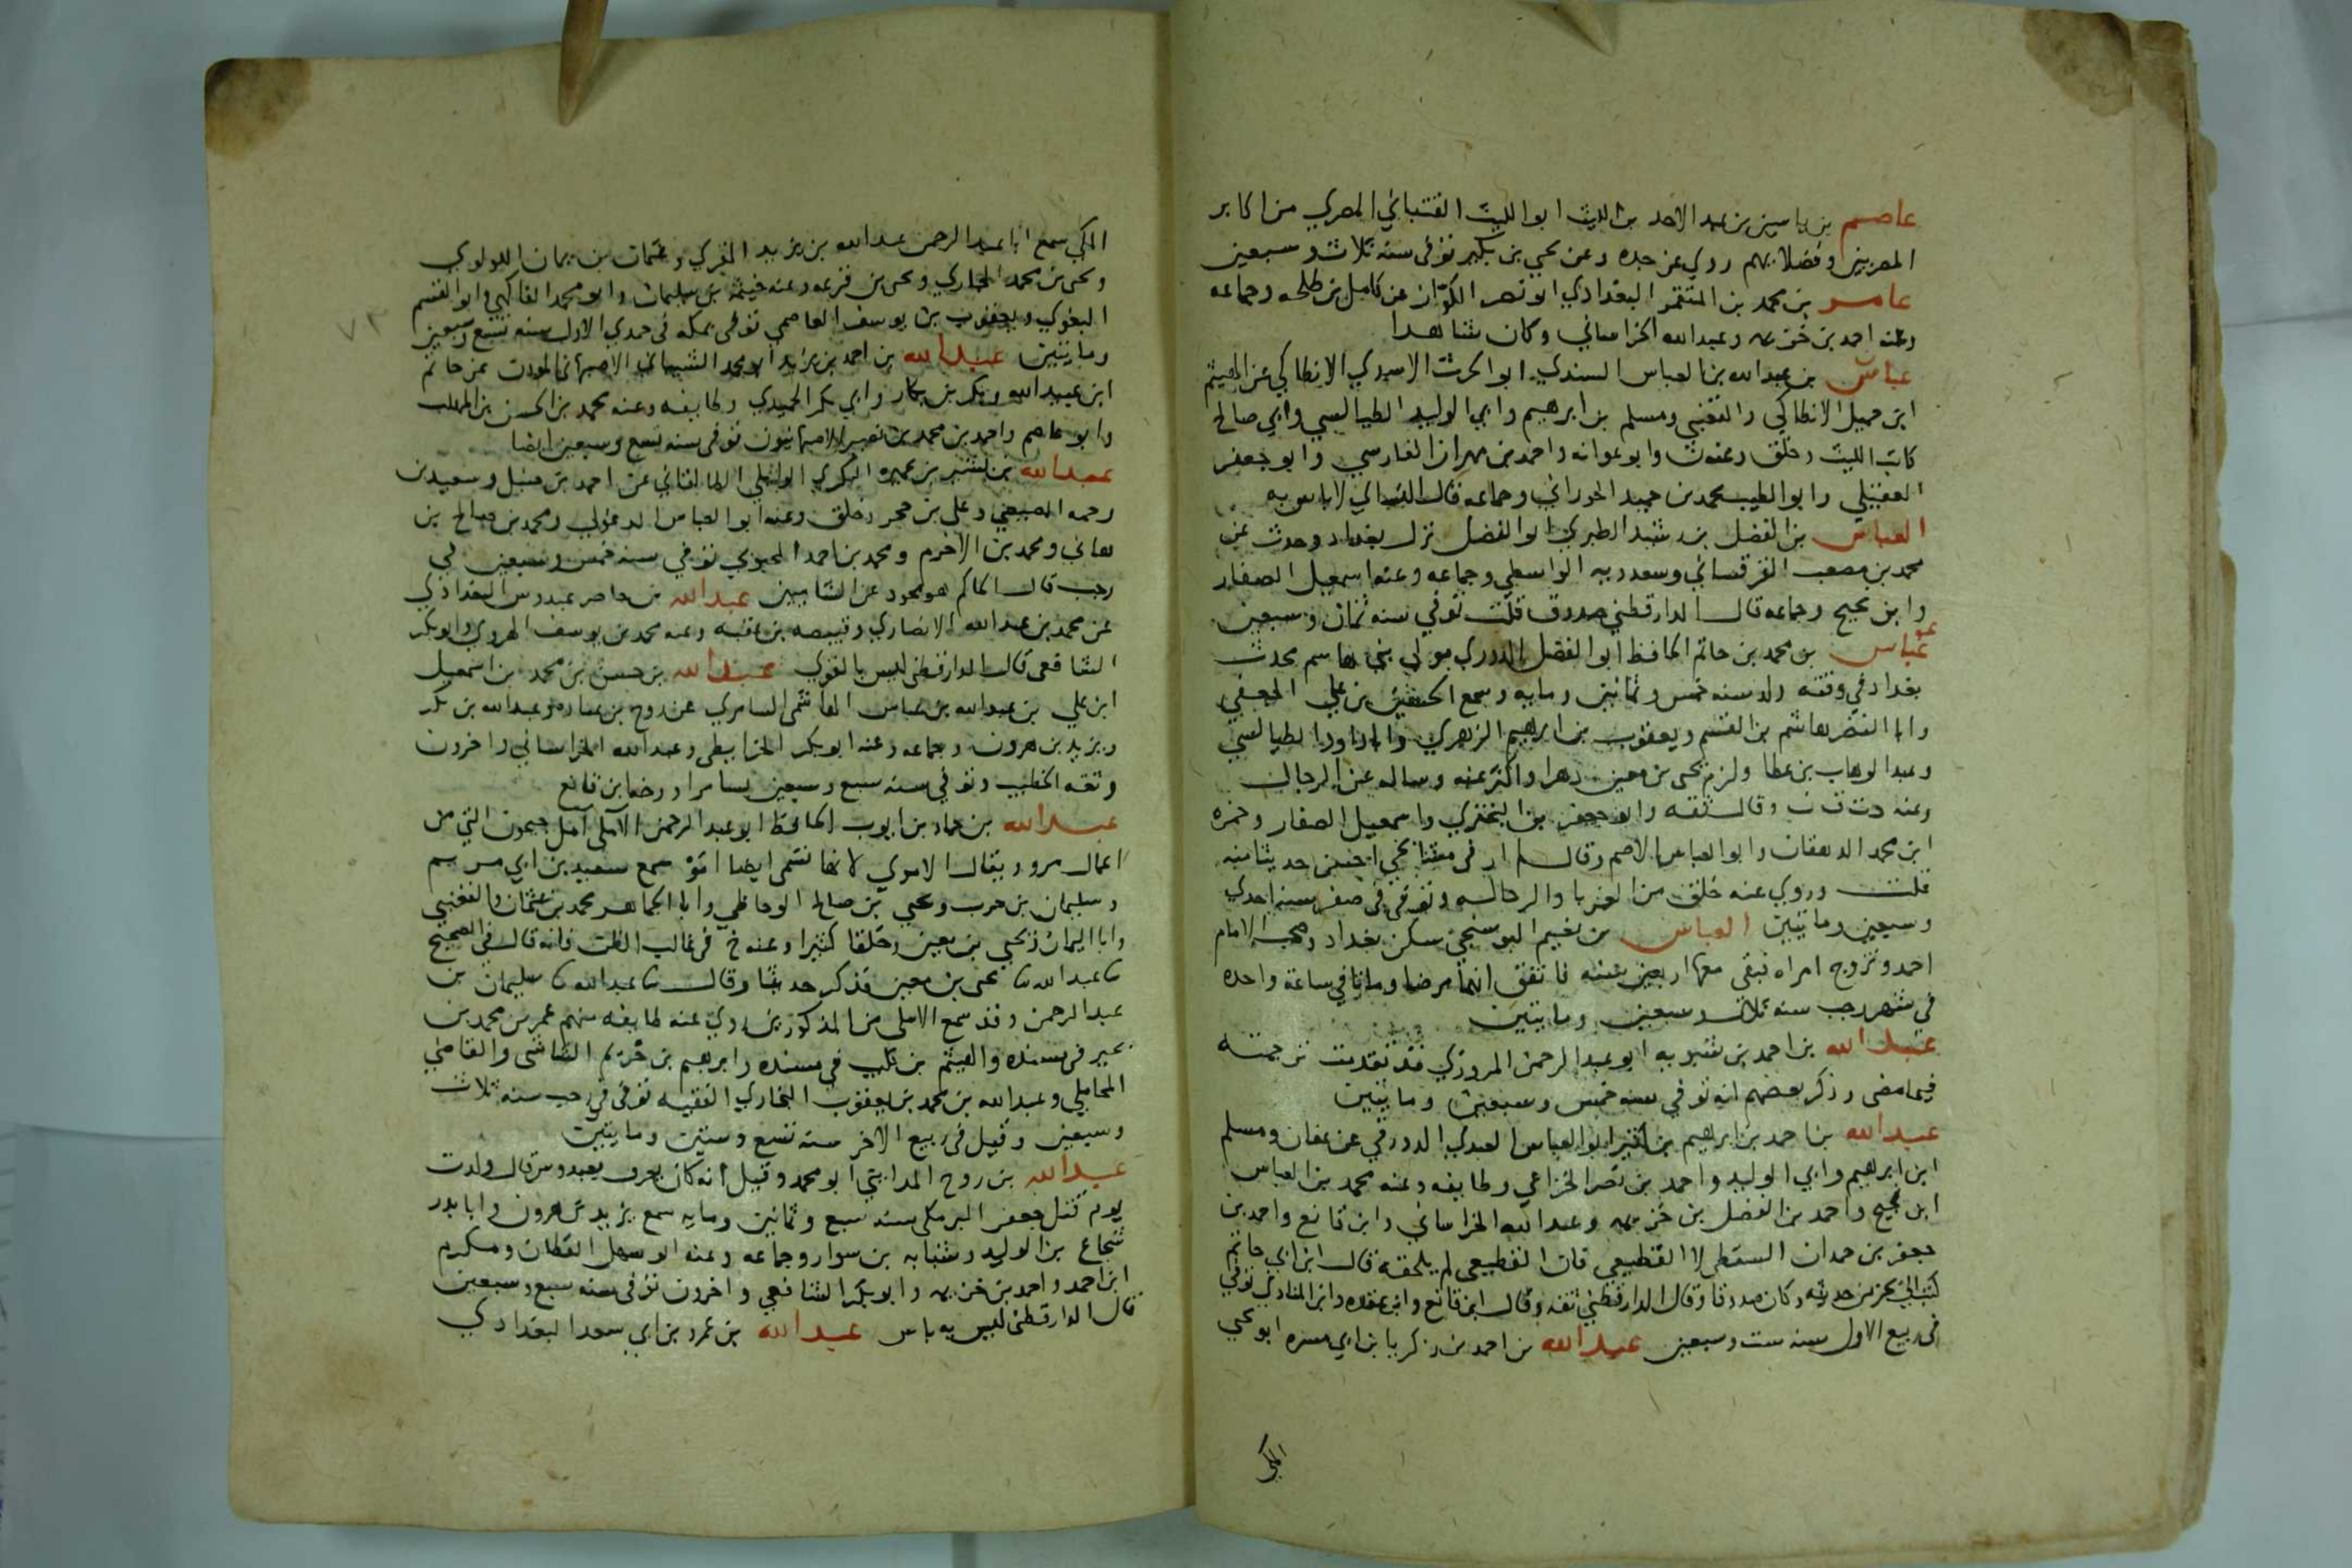 عاصم بن ياسين بن عبد الاحد بن الليث ابو الليث القتباني المصري من اكابر
المصريين وفضلايهم روي عن جده وعن يحيي بن بكير توفى سنه ثلاث وسبعين
عامر بن محمد بن المتقمر البغدادي ابو نصر الكواز عن كامل بن طلحه وجماعه
وعنه احمد بن خزيمه وعبدالله الخراساني وكان شاهدا
عباس بن عبدالله بن العباس السندي ابو الحرث الاسدي الانطاكي عن الهيثم
ابن جميل الانطاكي والقعنبي ومسلم بن ابرهيم وابي الوليد الطيالسي وابي صالح
كاتب الليث وخلق وعنه ن وابو عوانه واحمد بن مهران الفارسي وابو جعفر
العقيلي وابو الطيب محمد بن حميد الحوراني وجماعه قال النساي لا باس به
العباس بن الفضل بن رشيد الطبري ابو الفضل نزل بغداد وحدث عن
محمد بن مصعب القرقساني وسعدويه الواسطي وجماعه وعنه اسمعيل الصفار
وابن نجيح وجماعه قال الدارقطني صدوق قلت توفي سنه ثمان وسبعين
عو
عباس بن محمد بن حاتم الحافظ ابو الفضل الدوري مولي بني هاشم محدث
بغداد في وقته ولد سنه خمس وثمانين ومايه وسمع الحسين بن علي الجعفي
وابا النضر هاشم بن القسم ويعقوب بن ابرهيم الزهري وابا داود الطيالسي
وعبد الوهاب بن عطا ولزم يحى بن معين دهرا واكثر عنه وساله عن الرجال
وعنه د ت ق ن وقال ثقه وابو جعفر بن البختري واسمعيل الصفار وحمزه
ابن محمد الدهقان وابو العباس الاصم وقال لم ار في مشايخي احسن حديثا منه
قلت وروي عنه خلق من الغربا والرحاله وتوفي في صفر سنه احدي
وسبعين ومايتين العباس بن نعيم البوسنجي سكن بغداد وصحب الامام
احمد وتزوج امراه فبقى معها اربعين سنه فاتفق انهما مرضا وماتا في ساعة واحده
في شهر رجب سنه ثلاث وسبعين ومايتين
عبدالله بن احمد بن شبويه ابو عبد الرحمن المروزي قد تقدمت ترجمته
فيما مضى وذكر بعضهم انه توفي سنه خمس وسبعين ومايتين
عبدالله بن احمد بن ابرهيم بن كثير ابو العباس العبدي الدورقي عن عفان ومسلم
ابن ابرهيم وابي الوليد واحمد بن نصر الخزاعي وطايفه وعنه محمد بن العباس
ابن نجيح واحمد بن الفضل بن خزيمه وعبدالله الخراساني وابن قانع واحمد بن
جعفر بن حمدان السقطي لا القطيعي فان القطيعي لم يلحقه قال ابن ابي حاتم
كتب الي بجزء من حديثه وكان صدوقا وقال الدارقطني ثقه وقال ابن قانع وابن عقده وابن المنادي توفي
في ربيع الاول سنه ست وسبعين عبدالله بن احمد بن زكريا بن ابي مسره ابو يحيي
المكي
المكي سمع ابا عبد الرحمن عبدالله بن يزيد المقري وعثمان بن يمان اللولوي
ويحى بن محمد الجاري ويحى بن قزعه وعنه خيثمه بن سليمان وابو محمد الفاكهي وابو القسم
البغوي ويعقوب بن يوسف العاصمي توفى بمكه في جمدي الاول سنه تسع وسبعين
ومايتين عبدالله بن احمد بن يزيد ابو محمد الشيباني الاصبهاني المودب عن حاتم
ابن عبيد الله وبكر بن بكار وابي بكر الحميدي وطايفه وعنه محمد بن الحسن بن المهلب
وابو عاصم واحمد بن محمد بن نصير الاصبهانيون توفى سنه تسع وسبعين ايضا
عبدالله بن بشر بن عميره البكري الوايلي الطالقاني عن احمد بن حنبل وسعيد بن
رحمه المصيصي وعلي بن حجر وخلق وعنه ابو العباس الدغولي ومحمد بن صالح بن
هاني ومحمد بن الاخرم ومحمد بن احمد المحبوبي توفي سنه خمس وسبعين في
رجب قال الحاكم هو مجود عن الشاميين عبدالله بن حاضر عبدوس البغدادي
عن محمد بن عبدالله الانصاري وقبيصه بن عقبه وعنه محمد بن يوسف الهروي وابو بكر
الشافعى قال الدارقطني ليس بالقوي عبدالله بن حسن بن محمد بن اسمعيل
ابن علي بن عبدالله بن عباس الهاشمى السامري عن روح بن عباده وعبدالله بن بكر
ويزيد بن هرون وجماعه وعنه ابو بكر الخرايطي وعبدالله الخراساني واخرون
وثقه الخطيب وتوفي سنه سبع وسبعين بسامرا ورخه ابن قانع
عبدالله بن حماد بن ايوب الحافظ ابو عبد الرحمن الآملي آمل جيحون التي من
اعمال مرو ويقال الاموي لانها تسمى ايضا اَمُوْ سمع سعيد بن ابي مريم
وسليمان بن حرب ويحيي بن صالح الوحاظي وابا الجماهر محمد بن عثمان والقعنبي
وابا اليمان ويحيي بن معين وخلقا كثيرا وعنه خ في غالب الظن فانه قال في الصحيح
ثنا عبدالله ثنا يحى بن معين فذكر حديثا وقال ثنا عبدالله ثنا سليمان بن
عبد الرحمن وقد سمع الاملي من المذكورين روي عنه طايفه منهم عمر بن محمد بن
بجير في مسنده والهيثم بن كليب في مسنده وابرهيم بن خزيم الشاشي والقاضي
المحاملي وعبدالله بن محمد بن يعقوب البخاري الفقيه توفى في رجب سنه ثلاث
وسبعين وقيل في ربيع الاخر سنه تسع وستين ومايتين
عبدالله بن روح المدايني ابو محمد وقيل انه كان يعرف بعبدوس قال ولدت
يوم قتل جعفر البرمكي سنه سبع وثمانين ومايه سمع يزيد بن هرون وابا بدر
شجاع بن الوليد وشبابه بن سوار وجماعه وعنه ابو سهل القطان ومكرم
ابن احمد واحمد بن خزيمه وابو بكر الشافعي واخرون توفى سنه سبع وسبعين
قال الدارقطنى ليس به باس عبدالله بن عمرو بن ابي سعد البغدادي
٧٣